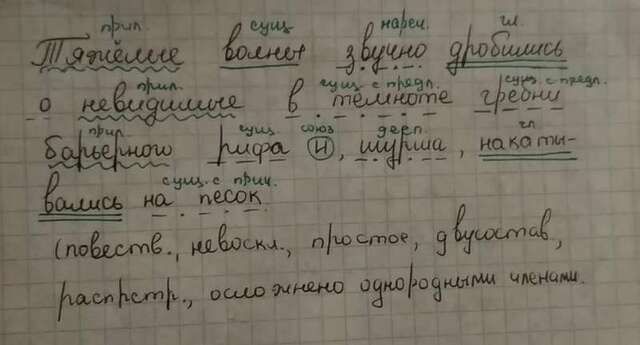 прил. сущ нареч. гл.
Тяжёлые волны звучно дробились
прил. сущ. с предл. сущ. с предл.
о невидимые в темноте гребни
прил. сущ. союз дееп. гл.
барьерного рифа и, шурша, накати-
сущ. с прич.
вались на песок.
(повеств., невоскл., простое, двусостав,
распрстр., осложнено однородными членами.